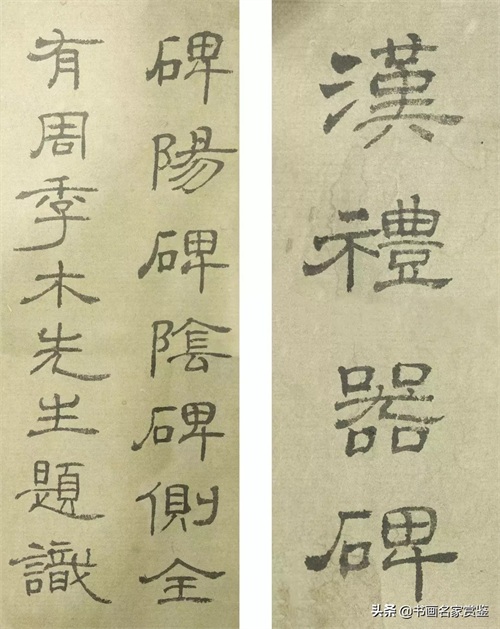 漢禮器碑
碑陽碑陰碑側全
有周季木先生題識
头条 @书画名家赏鉴